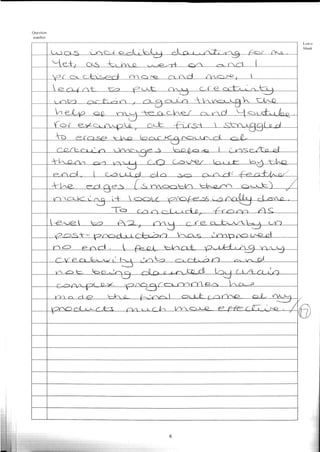 Question
number
Leave
blank
was incredibly daunting for me.
Yet, as time went on and I
practiced more and more, I
learnt to put my creativity
into action, again through the
help of my teacher and Youtube.
For example, at first I struggled
to erase the background of
certain images before I inserted
them on my CD cover but by the
end, I could do so and feather
the edges (smooth them out)
making it look professionally done.
To conclude, from AS
level to A2, my creativity in
post-production has improved
no end. I feel that putting my
creativity into action and
not being daunted by certain
complex programmes has
made the final outcome of my
products much more effective.
17
6